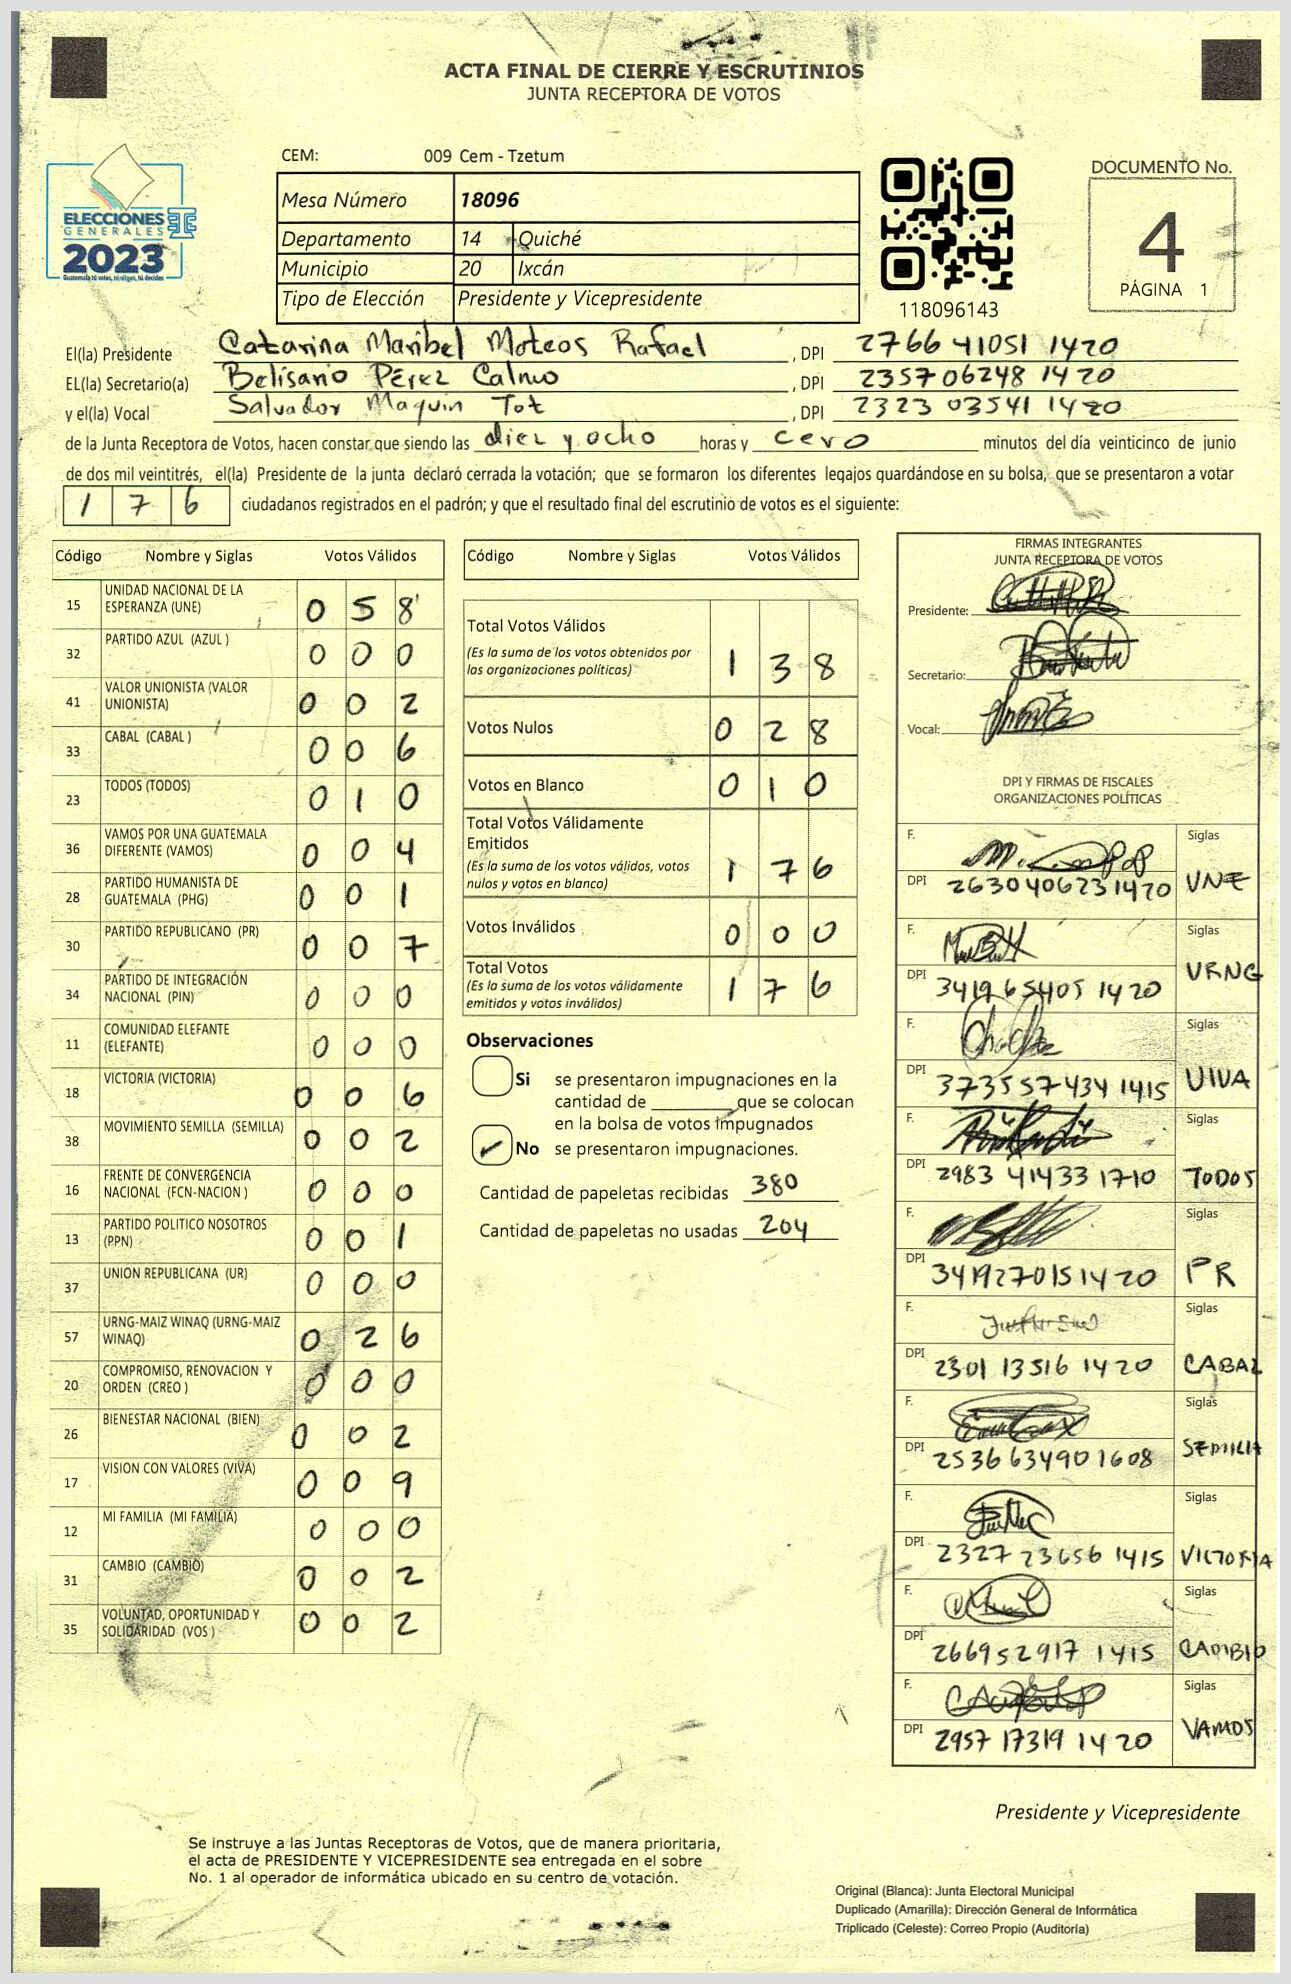 ACTA FINAL DE CIERRE Y ESCRUTINIOS
JUNTA RECEPTORA DE VOTOS
CEM: 009 Cem - Tzetum
ELECCIONES
GENERALES
2023
Guatemala tú votas, tú eliges, tú decides
Mesa Número 18096
Departamento 14 Quiché
Municipio 20 Ixcán
Tipo de Elección Presidente y Vicepresidente
118096143
DOCUMENTO No.
4
PÁGINA 1
El(la) Presidente Catarina Maribel Mateos Rafael , DPI 2766 41051 1420
EL(la) Secretario(a) Belisario Pérez Calmo , DPI 2357 06248 1420
y el(la) Vocal Salvador Maquin Tot , DPI 2323 03541 1420
de la Junta Receptora de Votos, hacen constar que siendo las diez y ocho horas y cero minutos del día veinticinco de junio
de dos mil veintitrés, el(la) Presidente de la junta declaró cerrada la votación; que se formaron los diferentes legajos guardándose en su bolsa, que se presentaron a votar
176 ciudadanos registrados en el padrón; y que el resultado final del escrutinio de votos es el siguiente:
Código Nombre y Siglas Votos Válidos
15 UNIDAD NACIONAL DE LA ESPERANZA (UNE) 0 5 8
32 PARTIDO AZUL (AZUL ) 0 0 0
41 VALOR UNIONISTA (VALOR UNIONISTA) 0 0 2
33 CABAL (CABAL ) 0 0 6
23 TODOS (TODOS) 0 1 0
36 VAMOS POR UNA GUATEMALA DIFERENTE (VAMOS) 0 0 4
28 PARTIDO HUMANISTA DE GUATEMALA (PHG) 0 0 1
30 PARTIDO REPUBLICANO (PR) 0 0 7
34 PARTIDO DE INTEGRACIÓN NACIONAL (PIN) 0 0 0
11 COMUNIDAD ELEFANTE (ELEFANTE) 0 0 0
18 VICTORIA (VICTORIA) 0 0 6
38 MOVIMIENTO SEMILLA (SEMILLA) 0 0 2
16 FRENTE DE CONVERGENCIA NACIONAL (FCN-NACION ) 0 0 0
13 PARTIDO POLITICO NOSOTROS (PPN) 0 0 1
37 UNION REPUBLICANA (UR) 0 0 0
57 URNG-MAIZ WINAQ (URNG-MAIZ WINAQ) 0 2 6
20 COMPROMISO, RENOVACION Y ORDEN (CREO ) 0 0 0
26 BIENESTAR NACIONAL (BIEN) 0 0 2
17 VISION CON VALORES (VIVA) 0 0 9
12 MI FAMILIA (MI FAMILIA) 0 0 0
31 CAMBIO (CAMBIO) 0 0 2
35 VOLUNTAD, OPORTUNIDAD Y SOLIDARIDAD (VOS ) 0 0 2
Código Nombre y Siglas Votos Válidos
Total Votos Válidos 1 3 8
(Es la suma de los votos obtenidos por
las organizaciones políticas)
Votos Nulos 0 2 8
Votos en Blanco 0 1 0
Total Votos Válidamente
Emitidos 1 7 6
(Es la suma de los votos válidos, votos
nulos y votos en blanco)
Votos Inválidos 0 0 0
Total Votos 1 7 6
(Es la suma de los votos válidamente
emitidos y votos inválidos)
Observaciones
Si se presentaron impugnaciones en la
cantidad de ________ que se colocan
en la bolsa de votos impugnados
No se presentaron impugnaciones.
Cantidad de papeletas recibidas 380
Cantidad de papeletas no usadas 204
FIRMAS INTEGRANTES
JUNTA RECEPTORA DE VOTOS
Presidente:
Secretario:
Vocal:
DPI Y FIRMAS DE FISCALES
ORGANIZACIONES POLÍTICAS
F. Siglas
DPI 2630406231420 UNE
F. Siglas
DPI 3419 65405 1420 URNG
F. Siglas
DPI 373557434 1415 UIVA
F. Siglas
DPI 2983 41433 1710 TODOS
F. Siglas
DPI 3419270151420 PR
F. Siglas
DPI 2301 13516 1420 CABAL
F. Siglas
DPI 2536634901608 SEMILLA
F. Siglas
DPI 2327 23656 1415 VICTORIA
F. Siglas
DPI 266952917 1415 CAMBIO
F. Siglas
DPI 2957 17319 1420 VAMOS
Presidente y Vicepresidente
Se instruye a las Juntas Receptoras de Votos, que de manera prioritaria,
el acta de PRESIDENTE Y VICEPRESIDENTE sea entregada en el sobre
No. 1 al operador de informática ubicado en su centro de votación.
Original (Blanca): Junta Electoral Municipal
Duplicado (Amarilla): Dirección General de Informática
Triplicado (Celeste): Correo Propio (Auditoría)